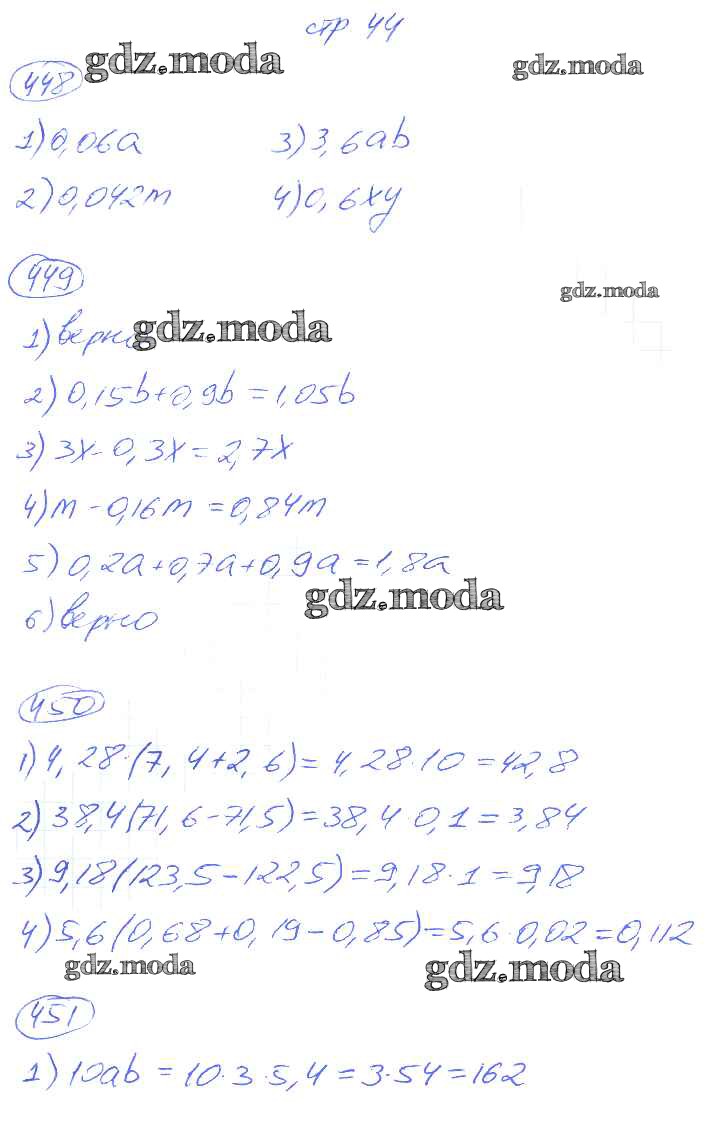 стр 44
gdz.moda
gdz.moda
448
1) 0,06a 3) 3,6ab
2) 0,042m 4) 0,6xy
449
gdz.moda
1) верно gdz.moda
2) 0,15b+0,9b=1,05b
3) 3x-0,3x=2,7x
4) m-0,16m=0,84m
5) 0,2a+0,7a+0,9a=1,8a
gdz.moda
6) верно
450
1) 4,28·(7,4+2,6)=4,28·10=42,8
2) 38,4(71,6-71,5)=38,4·0,1=3,84
3) 9,18(123,5-122,5)=9,18·1=9,18
4) 5,6(0,68+0,19-0,85)=5,6·0,02=0,112
gdz.moda gdz.moda
451
1) 10ab=10·3·5,4=3·54=162